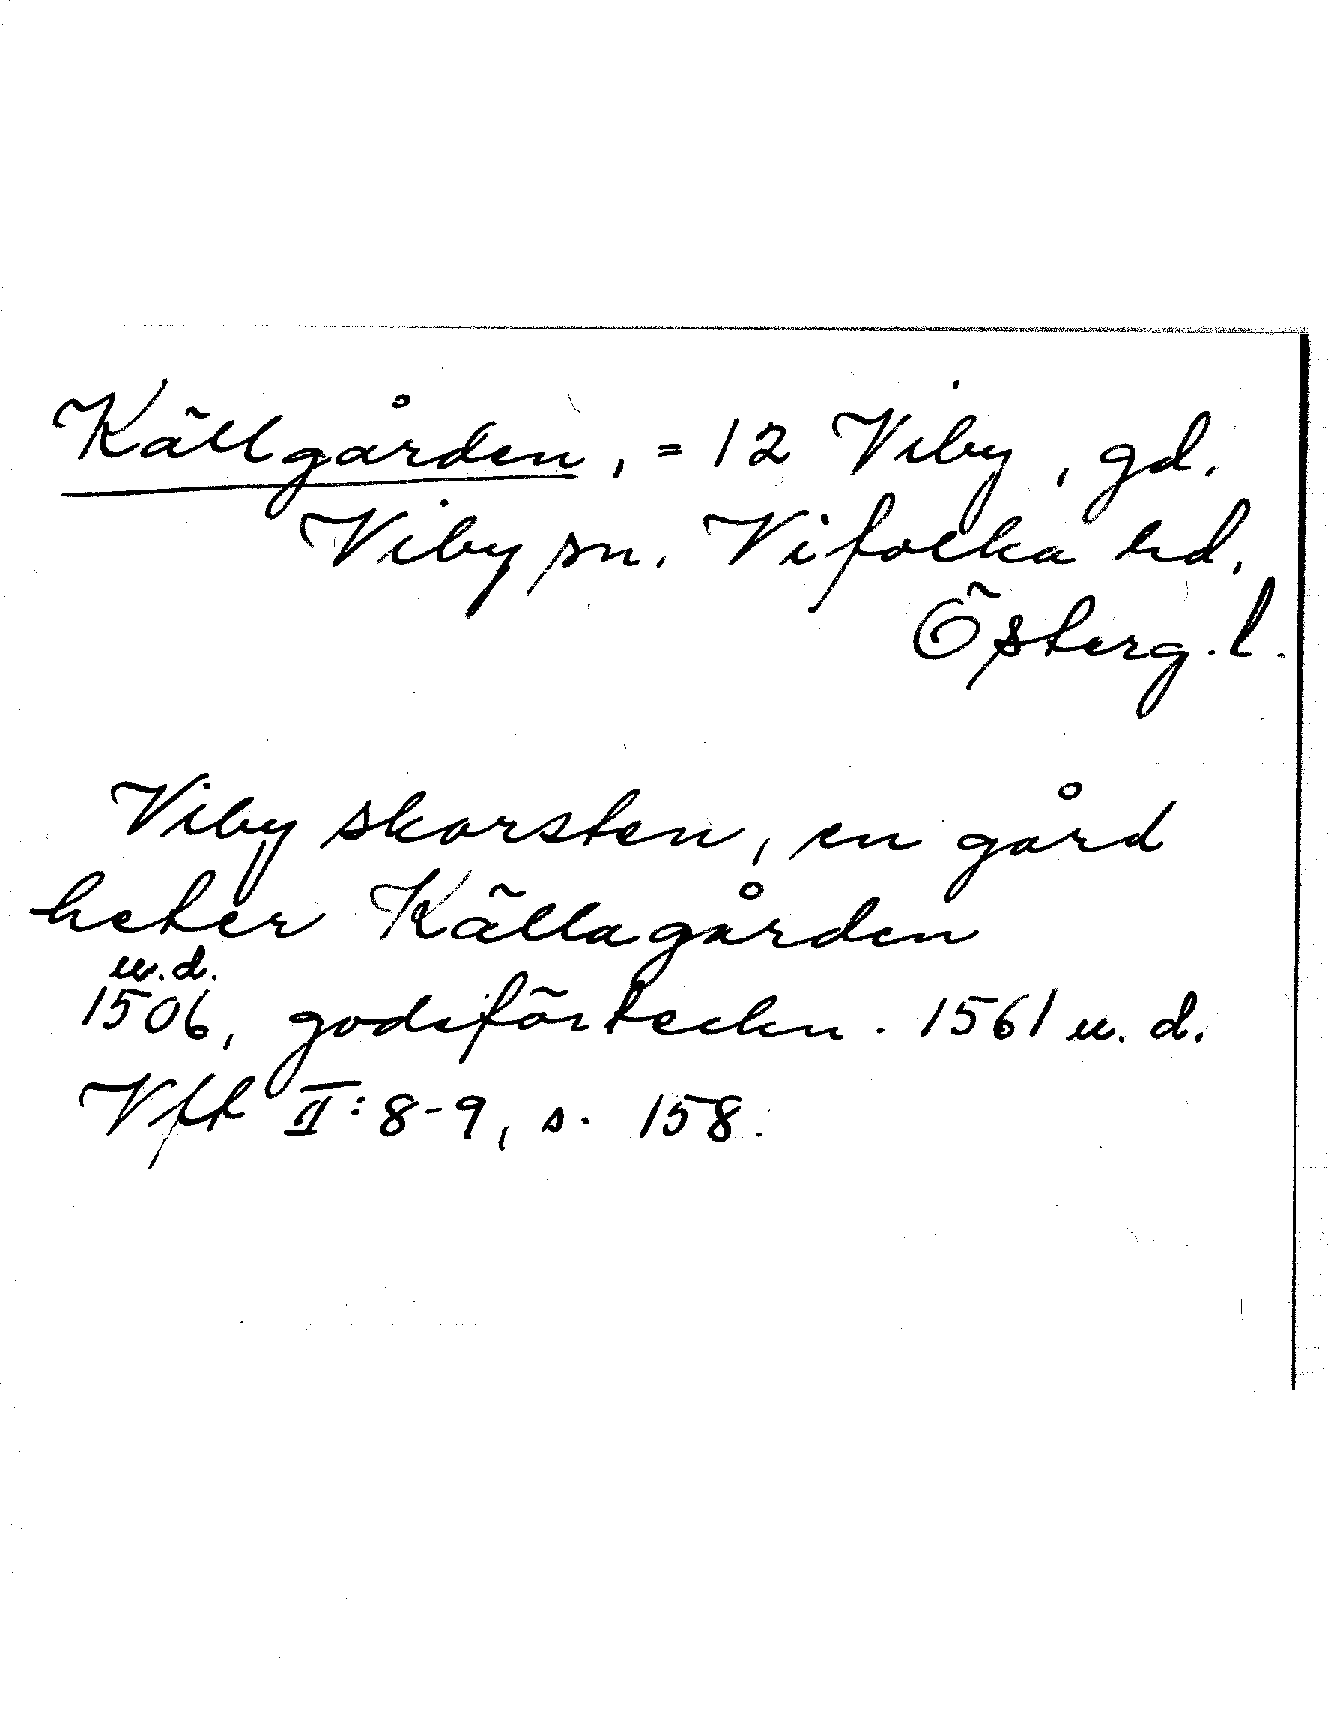 Källgården, = 12 Viby, gd.
Viby sn. Vifolka hd.
Österg. l.
Viby skorsten, en gård
heter Källagården
u.d.
1506, godsförteckn. 1561 u. d.
Vft II: 8-9, s. 158.